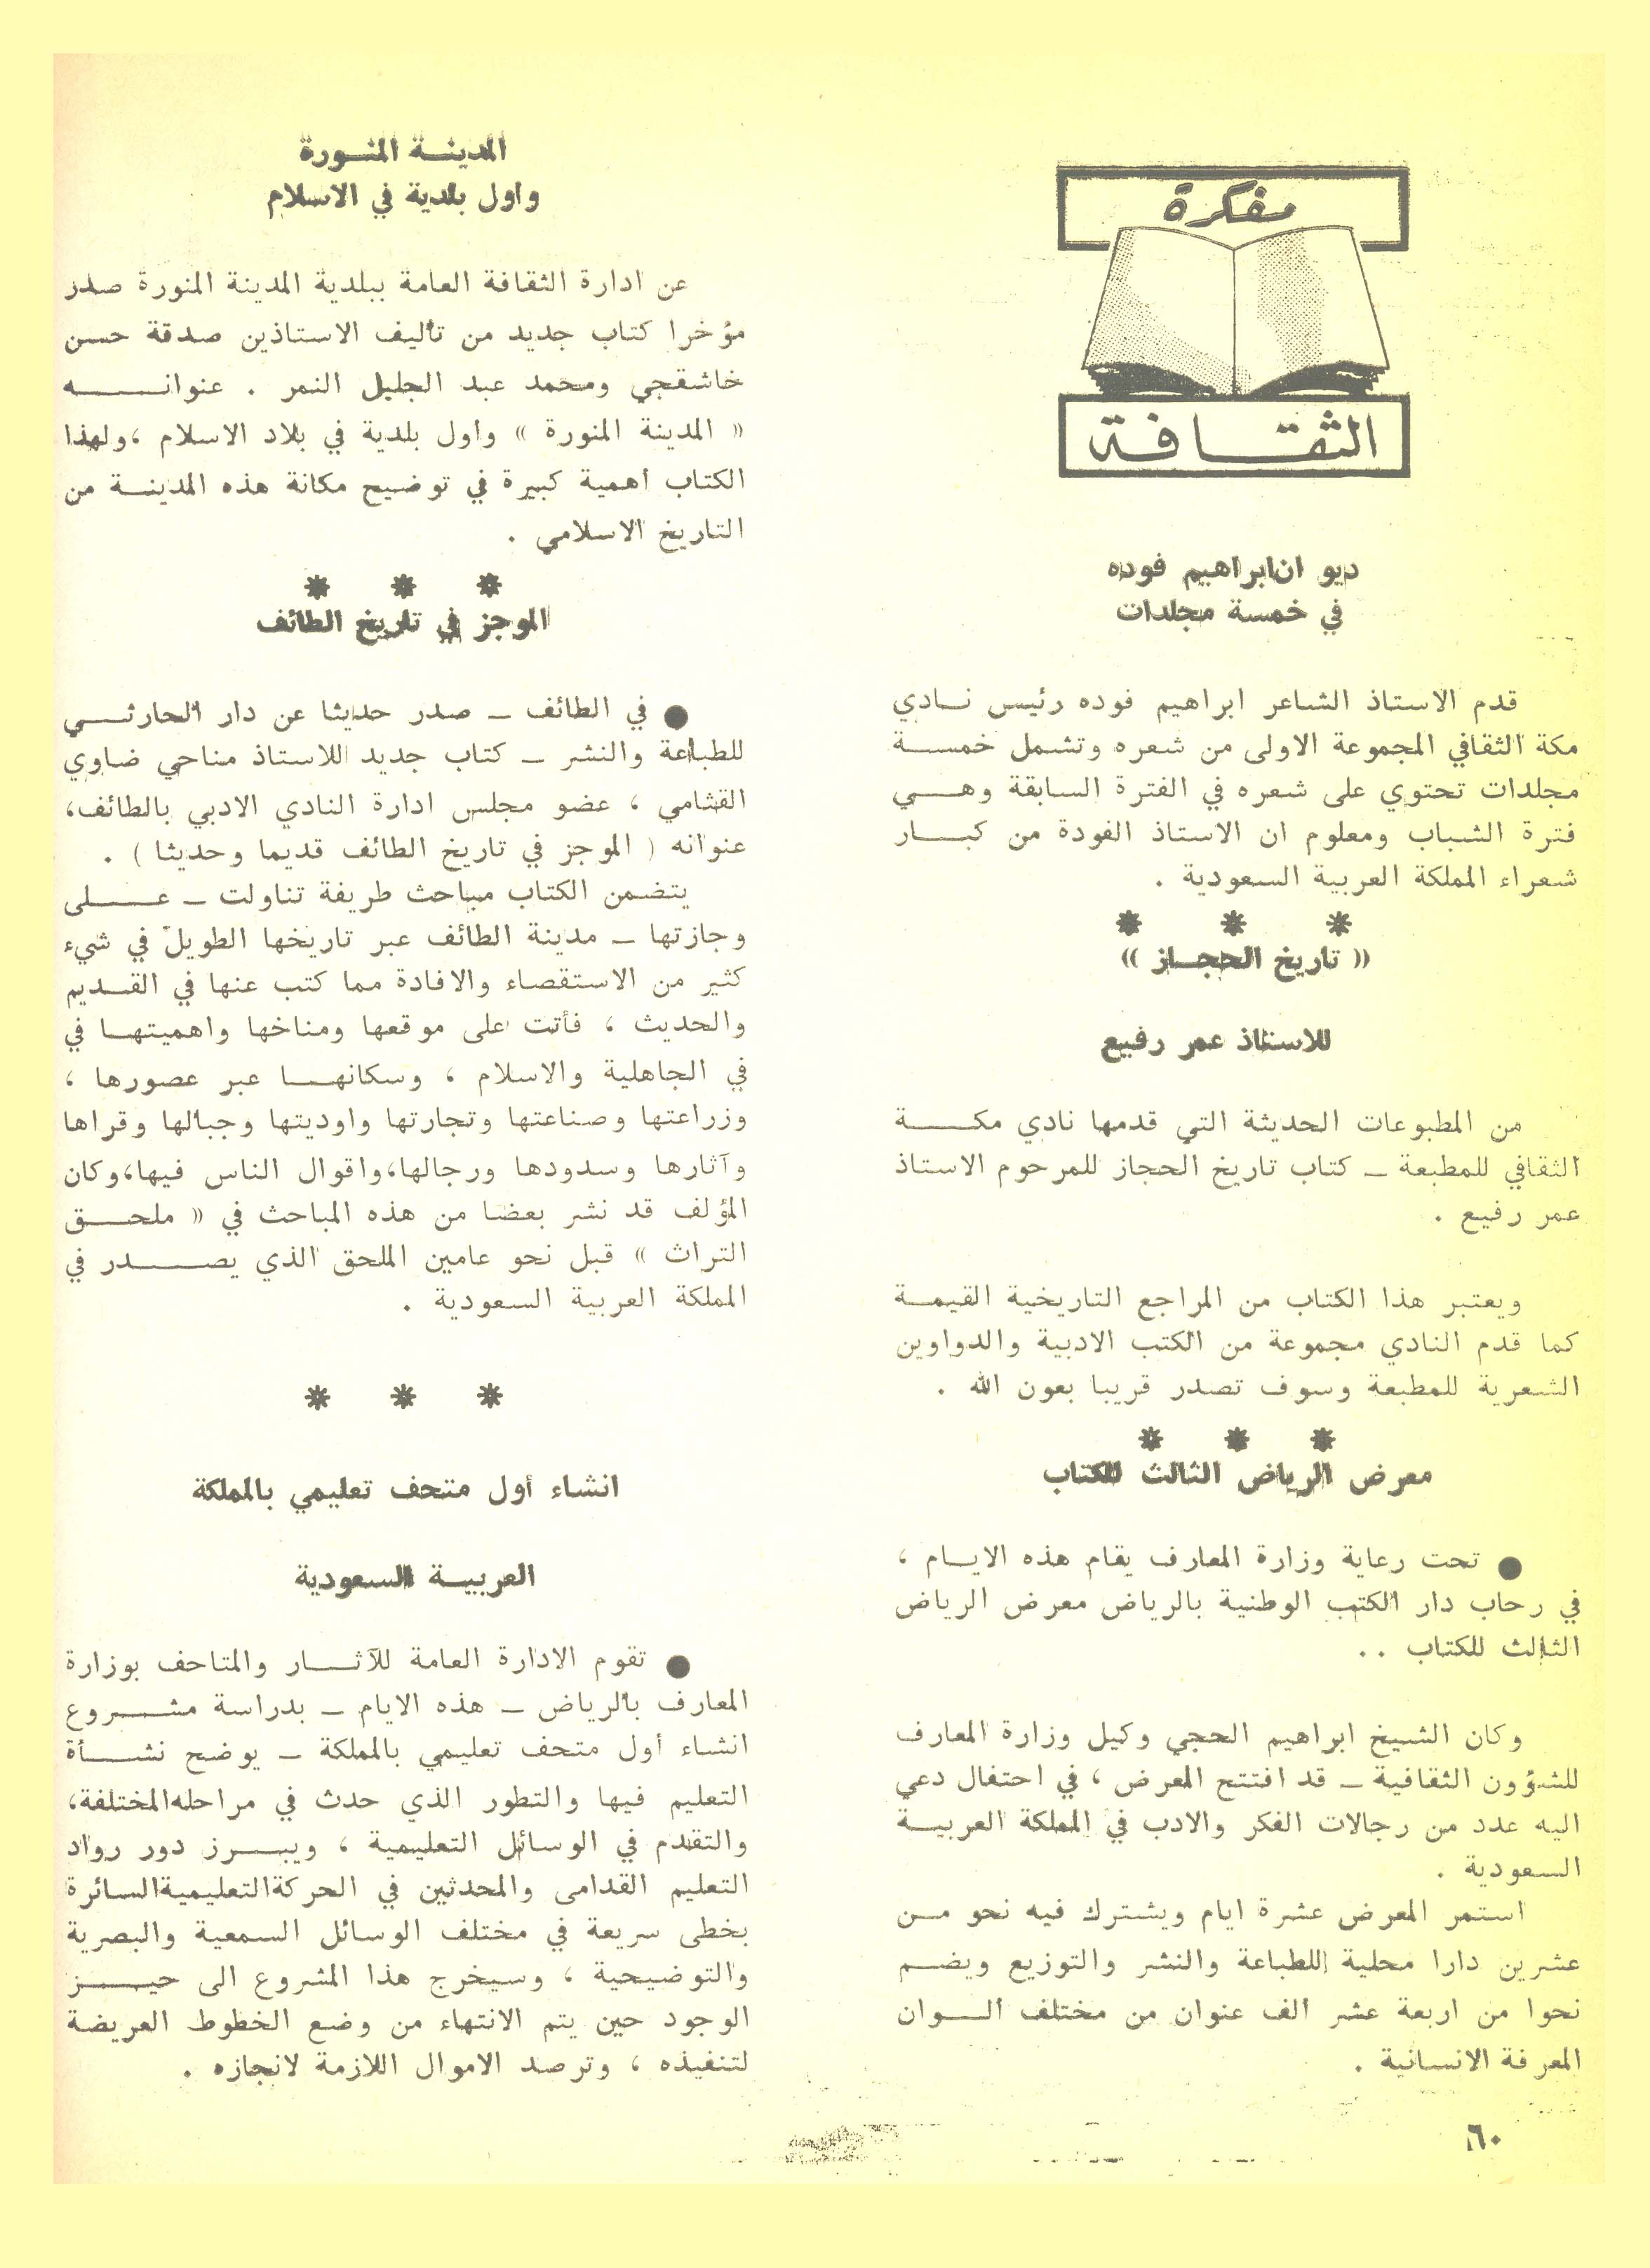 مفكرة
الثقافة
ديو ان ابراهيم فوده
في خمسة مجلدات
قدم الاستاذ الشاعر ابراهيم فوده رئيس نادي
مكة الثقافي المجموعة الاولى من شعره وتشمل خمسة
مجلدات تحتوي على شعره في الفترة السابقة وهي
فترة الشباب ومعلوم ان الاستاذ الفودة من كبار
شعراء المملكة العربية السعودية .
* * *
(( تاريخ الحجاز ))
للاستاذ عمر رفيع
من المطبوعات الحديثة التي قدمها نادي مكة
الثقافي للمطبعة ـ كتاب تاريخ الحجاز للمرحوم الاستاذ
عمر رفيع .
ويعتبر هذا الكتاب من المراجع التاريخية القيمة
كما قدم النادي مجموعة من الكتب الادبية والدواوين
الشعرية للمطبعة وسوف تصدر قريبا بعون الله .
* * *
معرض الرياض الثالث للكتاب
● تحت رعاية وزارة المعارف يقام هذه الايام ،
في رحاب دار الكتب الوطنية بالرياض معرض الرياض
الثالث للكتاب . .
وكان الشيخ ابراهيم الحجي وكيل وزارة المعارف
للشؤون الثقافية ـ قد افتتح المعرض ، في احتفال دعي
اليه عدد من رجالات الفكر والادب في المملكة العربية
السعودية .
استمر المعرض عشرة ايام ويشترك فيه نحو من
عشرين دارا محلية للطباعة والنشر والتوزيع ويضم
نحوا من اربعة عشر ألف عنوان من مختلف ألوان
المعرفة الانسانية .
٦٠
المدينة المنورة
واول بلدية في الاسلام
عن ادارة الثقافة العامة ببلدية المدينة المنورة صدر
مؤخرا كتاب جديد من تأليف الاستاذين صدقة حسن
خاشقجي ومحمد عبد الجليل النمر . عنوانه
(( المدينة المنورة )) واول بلدية في بلاد الاسلام ،ولهذا
الكتاب أهمية كبيرة في توضيح مكانة هذه المدينة من
التاريخ الاسلامي .
* * *
الموجز في تاريخ الطائف
● في الطائف ـ صدر حديثا عن دار الحارثي
للطباعة والنشر ـ كتاب جديد للاستاذ مناحي ضاوي
القثامي ، عضو مجلس ادارة النادي الادبي بالطائف،
عنوانه ( الموجز في تاريخ الطائف قديما وحديثا ) .
يتضمن الكتاب مباحث طريفة تناولت ـ على
وجازتها ـ مدينة الطائف عبر تاريخها الطويل في شيء
كثير من الاستقصاء والافادة مما كتب عنها في القديم
والحديث ، فأتت على موقعها ومناخها واهميتها في
في الجاهلية والاسلام ، وسكانها عبر عصورها ،
وزراعتها وصناعتها وتجارتها واوديتها وجبالها وقراها
وآثارها وسدودها ورجالها،واقوال الناس فيها،وكان
المؤلف قد نشر بعضا من هذه المباحث في (( ملحق
التراث )) قبل نحو عامين الملحق الذي يصدر في
المملكة العربية السعودية .
* * *
انشاء أول متحف تعليمي بالمملكة
العربية السعودية
● تقوم الادارة العامة للآثار والمتاحف بوزارة
المعارف بالرياض ـ هذه الايام ـ بدراسة مشروع
انشاء أول متحف تعليمي بالمملكة ـ يوضح نشأة
التعليم فيها والتطور الذي حدث في مراحله المختلفة،
والتقدم في الوسائل التعليمية ، ويبرز دور رواد
التعليم القدامى والمحدثين في الحركة التعليمية السائرة
بخطى سريعة في مختلف الوسائل السمعية والبصرية
والتوضيحية ، وسيخرج هذا المشروع الى حيز
الوجود حين يتم الانتهاء من وضع الخطوط العريضة
لتنفيذه ، وترصد الاموال اللازمة لانجازه .